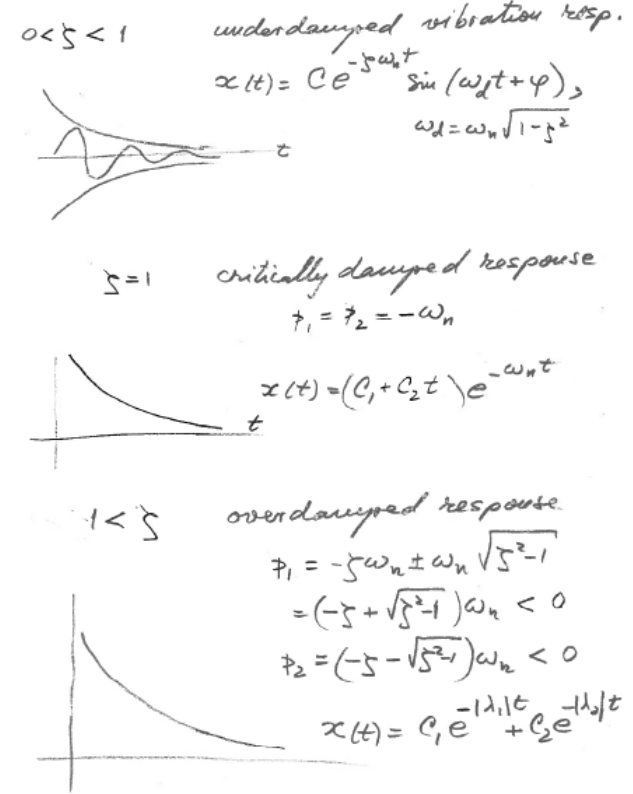 0<ζ<1 underdamped vibration resp.
x(t) = Ce^{-ζω_n t} sin(ω_d t+φ),
ω_d = ω_n √(1-ζ²)
t
ζ=1 critically damped response
p₁ = p₂ = -ω_n
x(t) = (C₁+C₂t)e^{-ω_n t}
t
1<ζ overdamped response
p₁ = -ζω_n ± ω_n √(ζ²-1)
= (-ζ+√(ζ²-1))ω_n < 0
p₂ = (-ζ-√(ζ²-1))ω_n < 0
x(t) = C₁e^{-|λ₁|t} + C₂e^{-|λ₂|t}